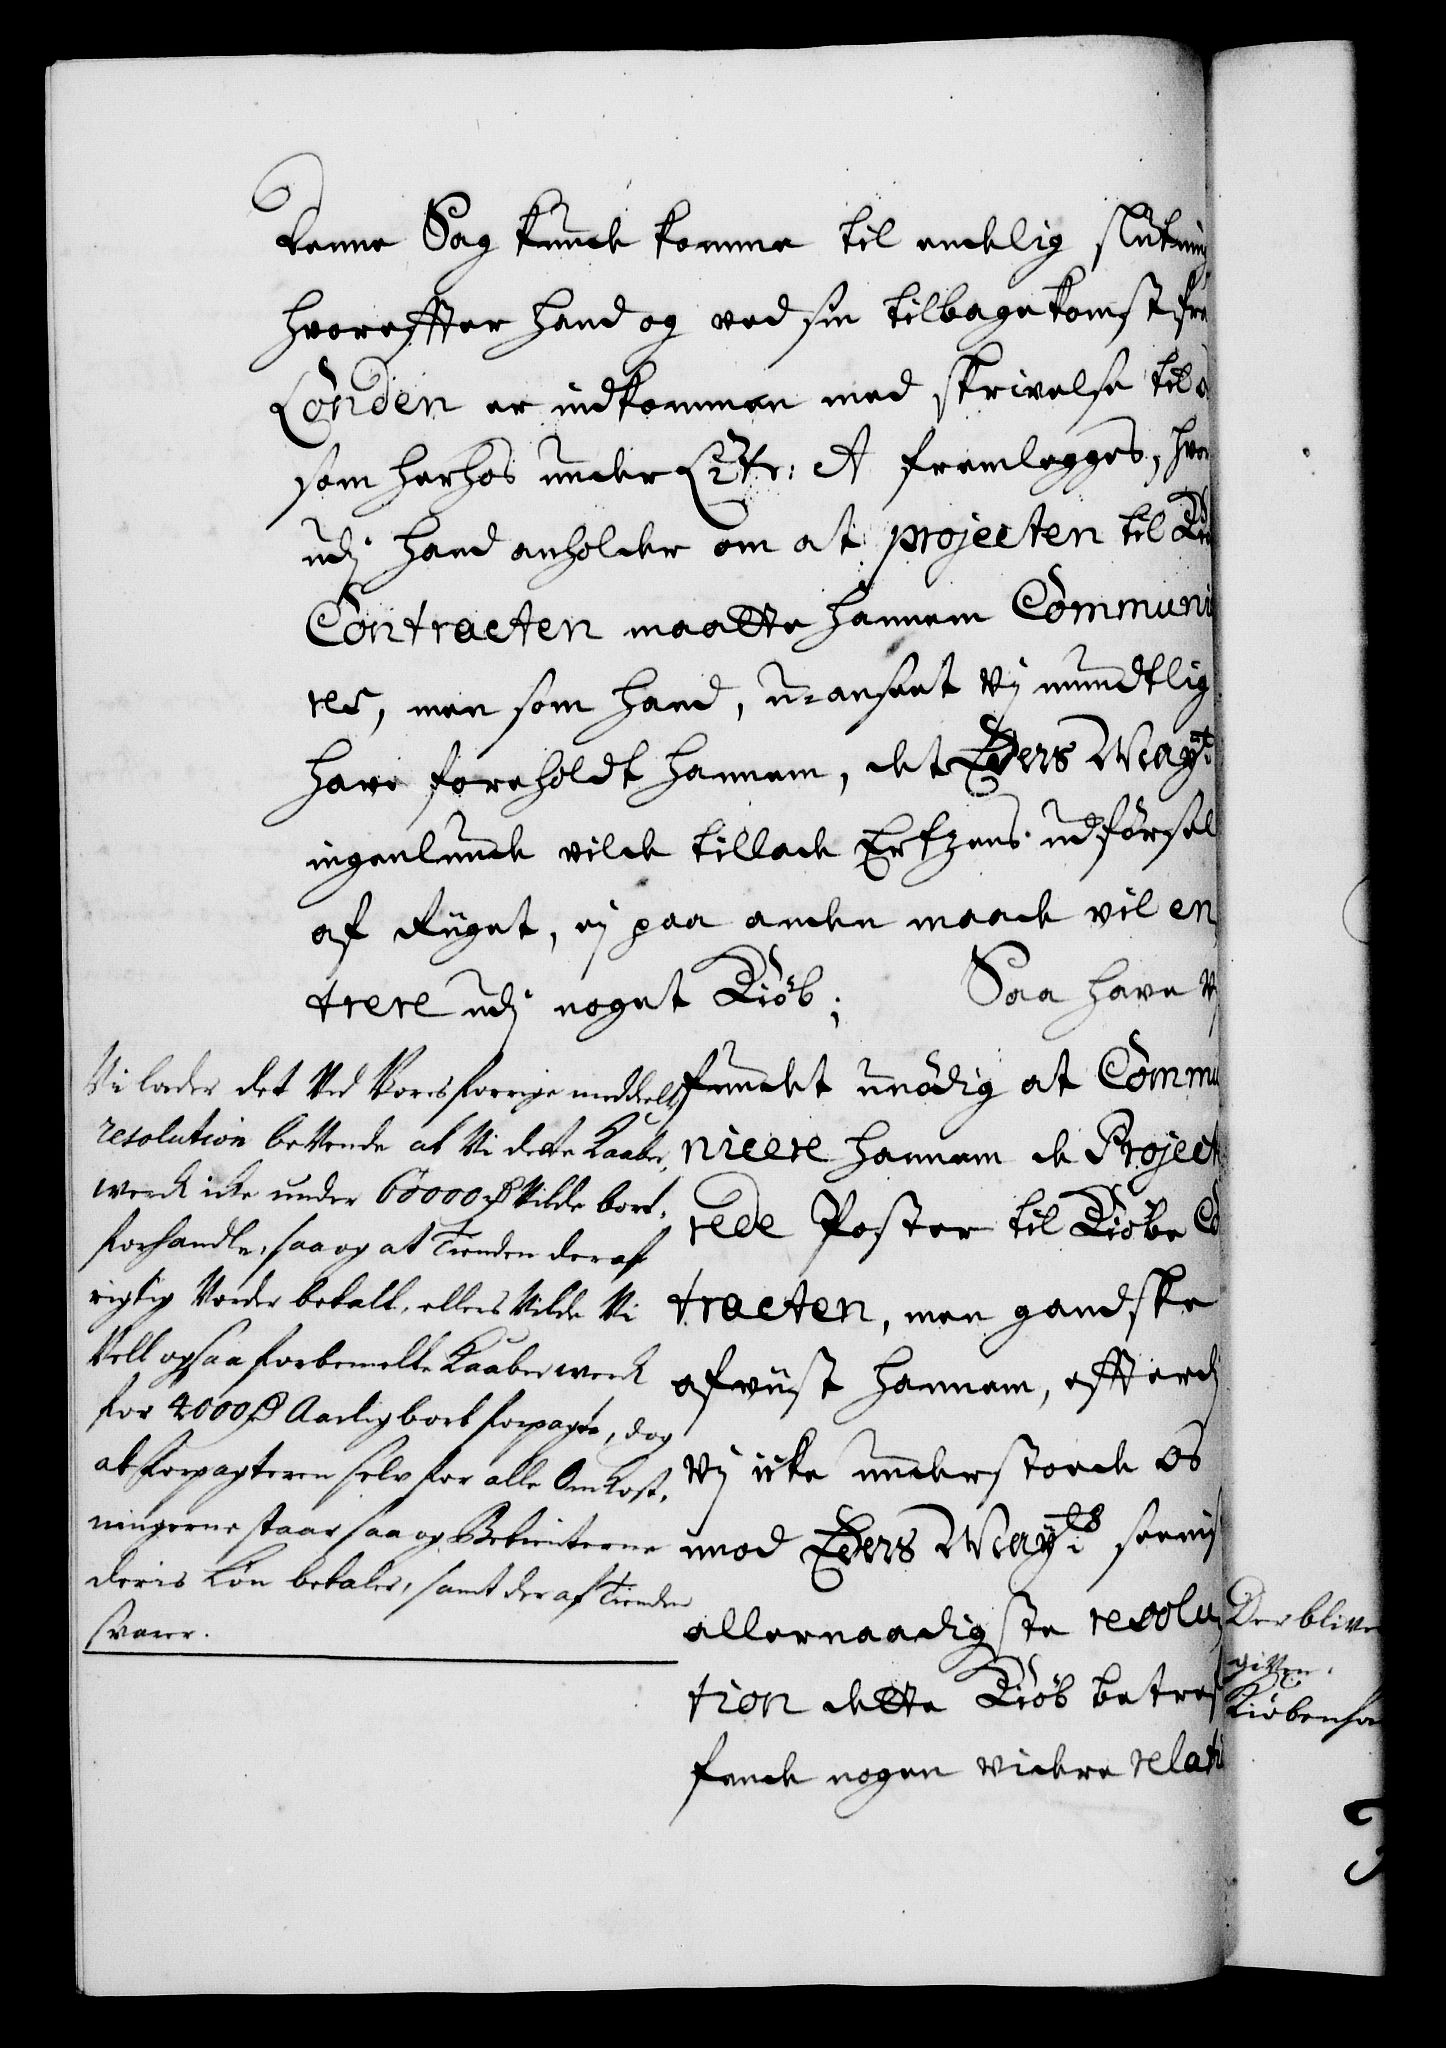 denne Sag kunde komme til endelig slutning
hvoreffter hand og ved sin tilbagekomst fra
London er indkommen med skrivelse til
som herhos under Litr: A fremlegges, hvor
udj hand anholder om at projecten til Kiøb
Contracten maatte hannem Communi
res, men som hand, u-anseet Vij mundtlig
have foreholdt hannem, det Eders Mayt
ingenlunde vilde tillade Ertzens udførsel
af Riiget, ej paa anden maade vil en
trere udj noget Kiøb; Saa have Vj
fundet unødig at Commu
nicere hannem de Project
rede Poster til Kiøbe Co
tracten, men gandske
afviist hannem, efftersom
Vj icke understoede os
mod Eders Mayts
allernaadigste resolu
tion dette Kiøb betref
fende nogen videre relati
Vi lader det Ved Vores forrige meddelte
resolution beVende at Vi dette Kaaber
werck icke under 60000 Rd Vilde bort
forhandle, saa og at Tienden deraf
rigtig Vorder betalt, ellers Vilde Vi
Vell ogsaa forbemelte Kaaberwerck
for 4000 Rd Aarlig bort forpagte, dog
at forpagteren selv for alle Omkost,
ningerne staar saa og Betienterne
deris Løn betaler, samt deraf Tienden
svarer.
Der blive
given.
Kiøbenha